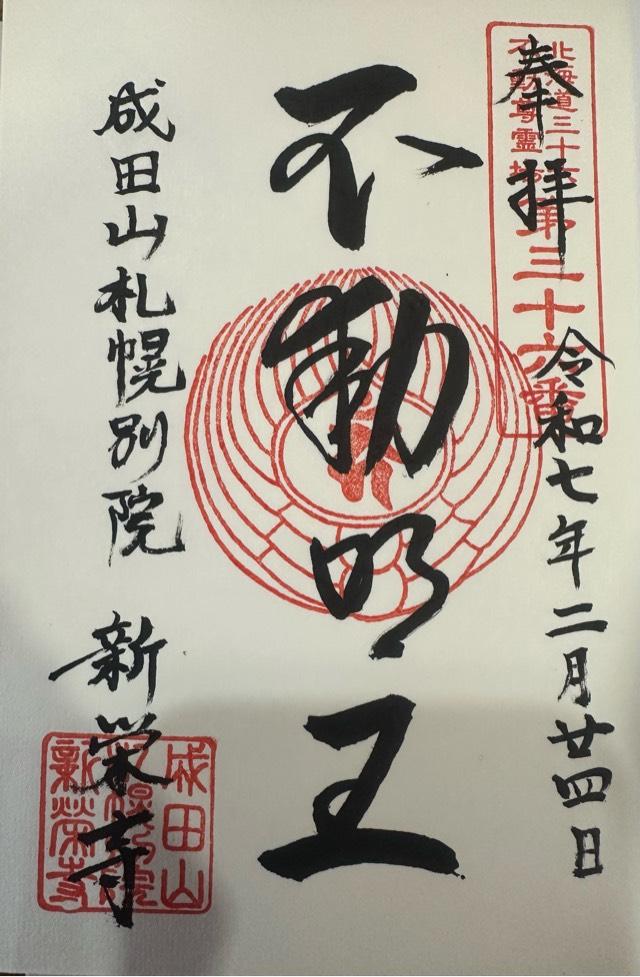 奉拝
令和七年二月廿四日
北海道三十六
不動尊霊場
第三十六番
不動明王
成田山札幌別院
新栄寺
成田山
札幌別院
新榮寺